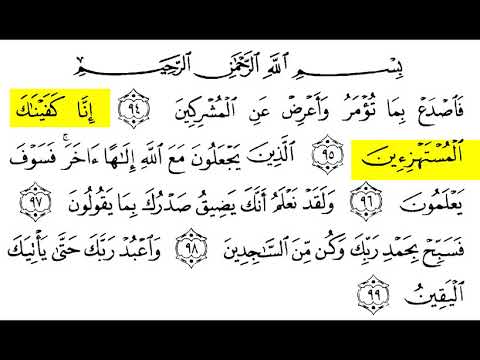 بِسْمِ اللَّهِ الرَّحْمَٰنِ الرَّحِيمِ
فَاصْدَعْ بِمَا تُؤْمَرُ وَأَعْرِضْ عَنِ الْمُشْرِكِينَ ٩٤ إِنَّا كَفَيْنَاكَ
الْمُسْتَهْزِءِينَ ٩٥ الَّذِينَ يَجْعَلُونَ مَعَ اللَّهِ إِلَٰهًا ءَاخَرَ ۚ فَسَوْفَ
يَعْلَمُونَ ٩٦ وَلَقَدْ نَعْلَمُ أَنَّكَ يَضِيقُ صَدْرُكَ بِمَا يَقُولُونَ ٩٧
فَسَبِّحْ بِحَمْدِ رَبِّكَ وَكُن مِّنَ السَّاجِدِينَ ٩٨ وَاعْبُدْ رَبَّكَ حَتَّىٰ يَأْتِيَكَ
الْيَقِينُ ٩٩